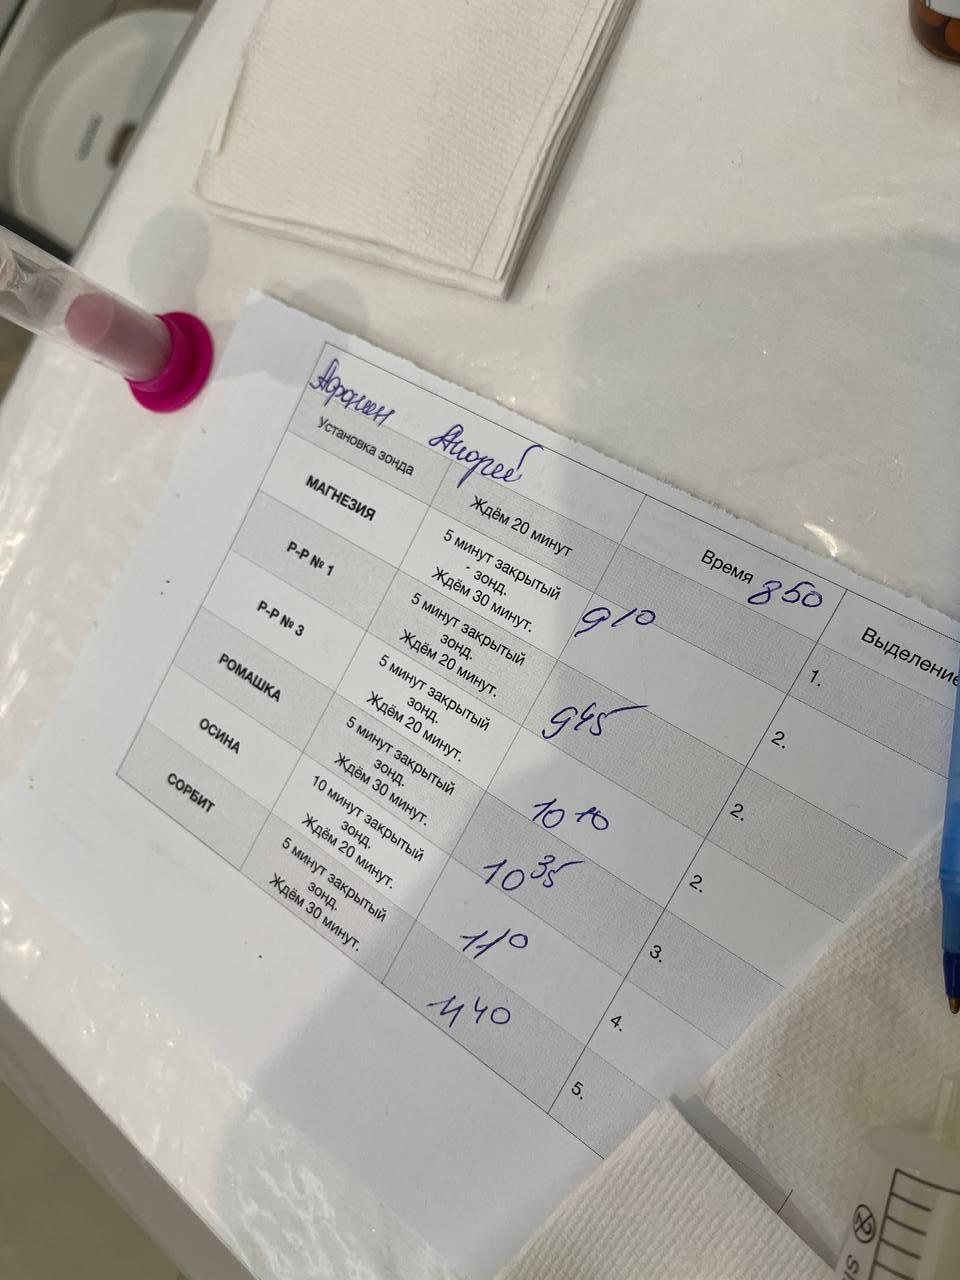 Афонин Андрей
Время 850
Выделение
Установка зонда
Ждём 20 минут
1.
МАГНЕЗИЯ
5 минут закрытый
зонд.
Ждём 30 минут.
910
2.
Р-Р № 1
5 минут закрытый
зонд.
Ждём 20 минут.
945
2.
Р-Р № 3
5 минут закрытый
зонд.
Ждём 20 минут.
1010
2.
РОМАШКА
5 минут закрытый
зонд.
Ждём 30 минут.
1035
3.
ОСИНА
10 минут закрытый
зонд.
Ждём 20 минут.
1110
4.
СОРБИТ
5 минут закрытый
зонд.
Ждём 30 минут.
1140
5.